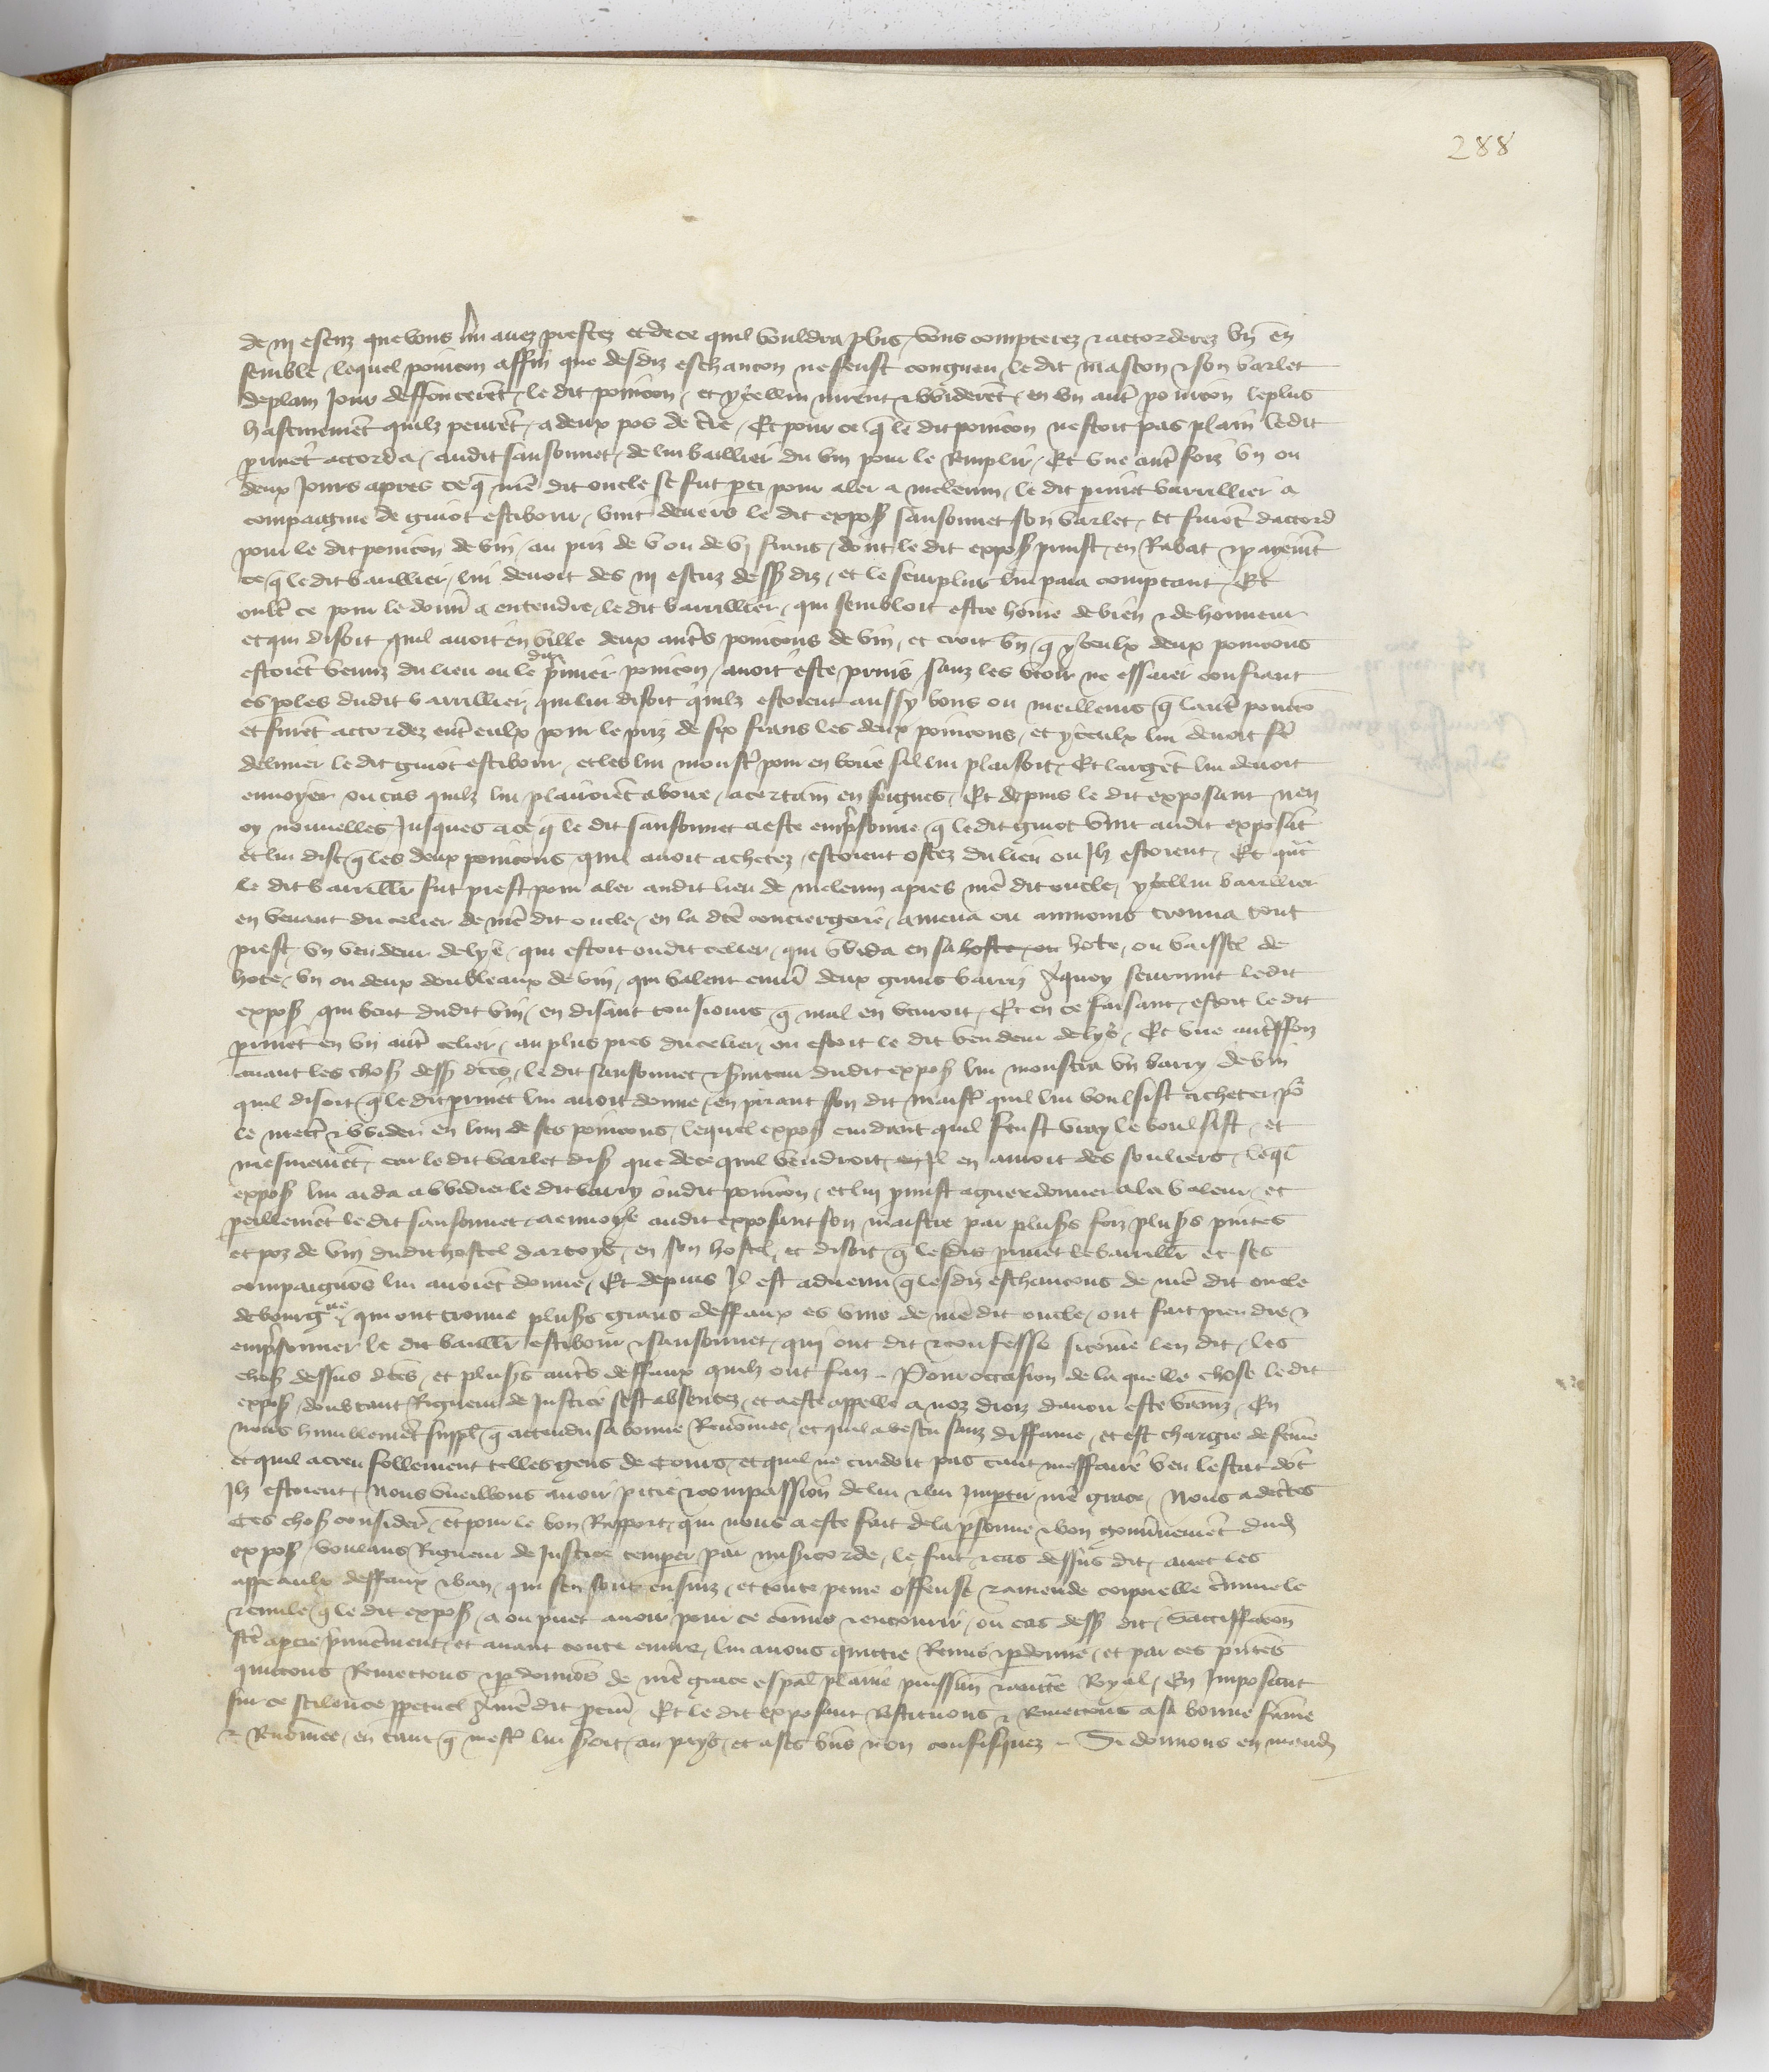 288
de iii escuz que vous lui avez prestez et de ce quil vouldra plus, vous compterez & accorderez vn en
semble, lequel poincon affin que desdiz eschancon ne feust congneu, le dit maston & son varlet
de plain jour deffoncerēt le dit poincon, et ycellui mirent & voiderēt en vn autr poincon le plus
hastiuemēt quilz peurēt, a deux pos de terre, Et pour ce q le dit poincon nestoit pas plain ledit
perrinet accorda audit sansonnet de lui baillier du vin pour le Remplir, Et vne autr foiz vn ou
deux jours apres ce q nre dit oncle se fut pti pour aler a meleun, le dit perrinet barrillier a
compaignie de guiot estibour, vint deuers le dit expos sansonnet son varlet, et furēt daccord
pour le dit poincon de vin au pris de v ou de vj frans, dont le dit expos prinst en Rabat & payemēt
ce q le dit barillier lui deuoit des iii escuz dess diz, et le seurplus lui paia comptant, Et
oultr ce pour le donner a entendre, le dit barrillier, qui sembloit estre home de bien & de honneur
et qui disoit quil auoit en ville deux autrs poincons de vin, et croit vn q yceulx deux poincons
estoiēt venuz du lieu ou le dit premier poincon auoit este prins sanz les veoir ne essaier confiant
es poles dudit barrillier, qui lui disoit quilz estoient aussy bons ou meilleurs q lautr poincō
et furēt accordez entr eulx pour le pris de six frans les deux poincons, et yceulx lui deuoit fe
deliurer le dit guiot estibour, et les lui monstr pour en boire sil lui plaisoit, Et largēt lui deuoit
enuoyer ou cas quilz lui plairoiēt a boire, a certain en seignes, Et depuis le dit exposant nen
oy nouuelles jusques a ce q le dit sansonnet a este emprisonne q ledit guiot vint audit exposāt
et lui dist q les deux poincons quil auoit achetez estoient ostez du lieu ou jlz estoient, Et quāt
le dit barrillr fut prest pour aler audit lieu de meleun apres nre dit oncle, ycellui barillier
en venant du celier de nre dit oncle, en la dte conciergerie, amena ou aumoins trouua tout
prest vn vendeur de lye, qui estoit oudit celier, qui vida en sa hoste, ou hote, ou vaissel de
hote, vn ou deux doubleaux de vin, qui valent enuirō deux grans barriz a quoy seuruint ledit
expos, qui beut dudit vin, en disant tousiours q mal en venroit, Et en ce faisant, estoit le dit
perrinet en vn autr celier, au plus pres du celier, ou estoit le dit vendeur de lye, Et vne autreffoiz
auant les chos dess dces, le dit sansonnet & seruiteur dudit expos lui monstra vn barry de vin
quil disoit q le dit perrinet lui auoit donne, en priant son dit maistr quil lui voulsist acheter po
le mettr & vvider en lun de ses poincons, lequel expos cuidant quil feust vray le voulsist, et
mesmemēt, car le dit varlet dis que de ce quil vendroit, jl en auroit des souliers, leql
expos lui aida a vvidier le dit barry oudit poincon, et lui prinst a guerdonner a la valeur, et
peillemēt le dit sansonnet a enuoye audit exposant son maistre par plusrs foiz plusrs pintes
et poz de vin dudit hostel dartoys, en son hostel, et disoit q lesdis perrinet le barrillr et ses
compaignōs lui auoiēt donne, Et depuis jl est aduenu q lesdiz eschancons de nre dit oncle
de bourgne, qui ont trouue plusrs grans deffaux es vins de nre dit oncle, ont fait prendre &
emprisonner le dit barillr estibour & sansonnet, qui ont dit & confesse si come len dit, les
chos dessus dces, et plusrs autrs deffaux quilz ont faiz. Pour occasion de la quelle chose le dit
expos doubtant Rigueur de justice sest absentez, et a este appelle a noz droiz dauou este banniz, En
nous humblemēt suppl q attendu sa bonne Renommee, et quil a vescu sanz diffame, et est chargie de feme
et quil a creu follement telles gens de cours, et quil ne cuidoit pas tant meffaire veu lestat dōt
jlz estoient, Nous vueillons auoir pitie & compassion de lui & lui jmpartir nre grace, Nous adectes
ces chos considerr, et pour le bon Rapport, qui nous a este fait de la psonne & bon gouuernemēt dud
expos, voulans Rigueur de justice temper par misicorde, le fait & cas dessus dit, auec les
appeaulx deffaux & ban, qui sen sont ensuiz, et toute peine offense & amende corporelle criminele
& ciuile q le dit expos, a ou puet auoir pour ce comis & encouru, ou cas dess dit, Satiffacon
fcte a ptie premieremēt, et auant toute euure, lui auons quictie Remis & pdonne, et par ces pntes
quictons Remettons & pdonnōs de nre grace espal plaine puissan & auctte Royal, En jmposant
sur ce scilence ppetuel a nre dit pcur, Et le dit exposant restituons & Remettons a sa bonne fame
& Renomee, en tant q mest lui seroit, au pays, et a ses biēs non confisquez. Si donnons en mand